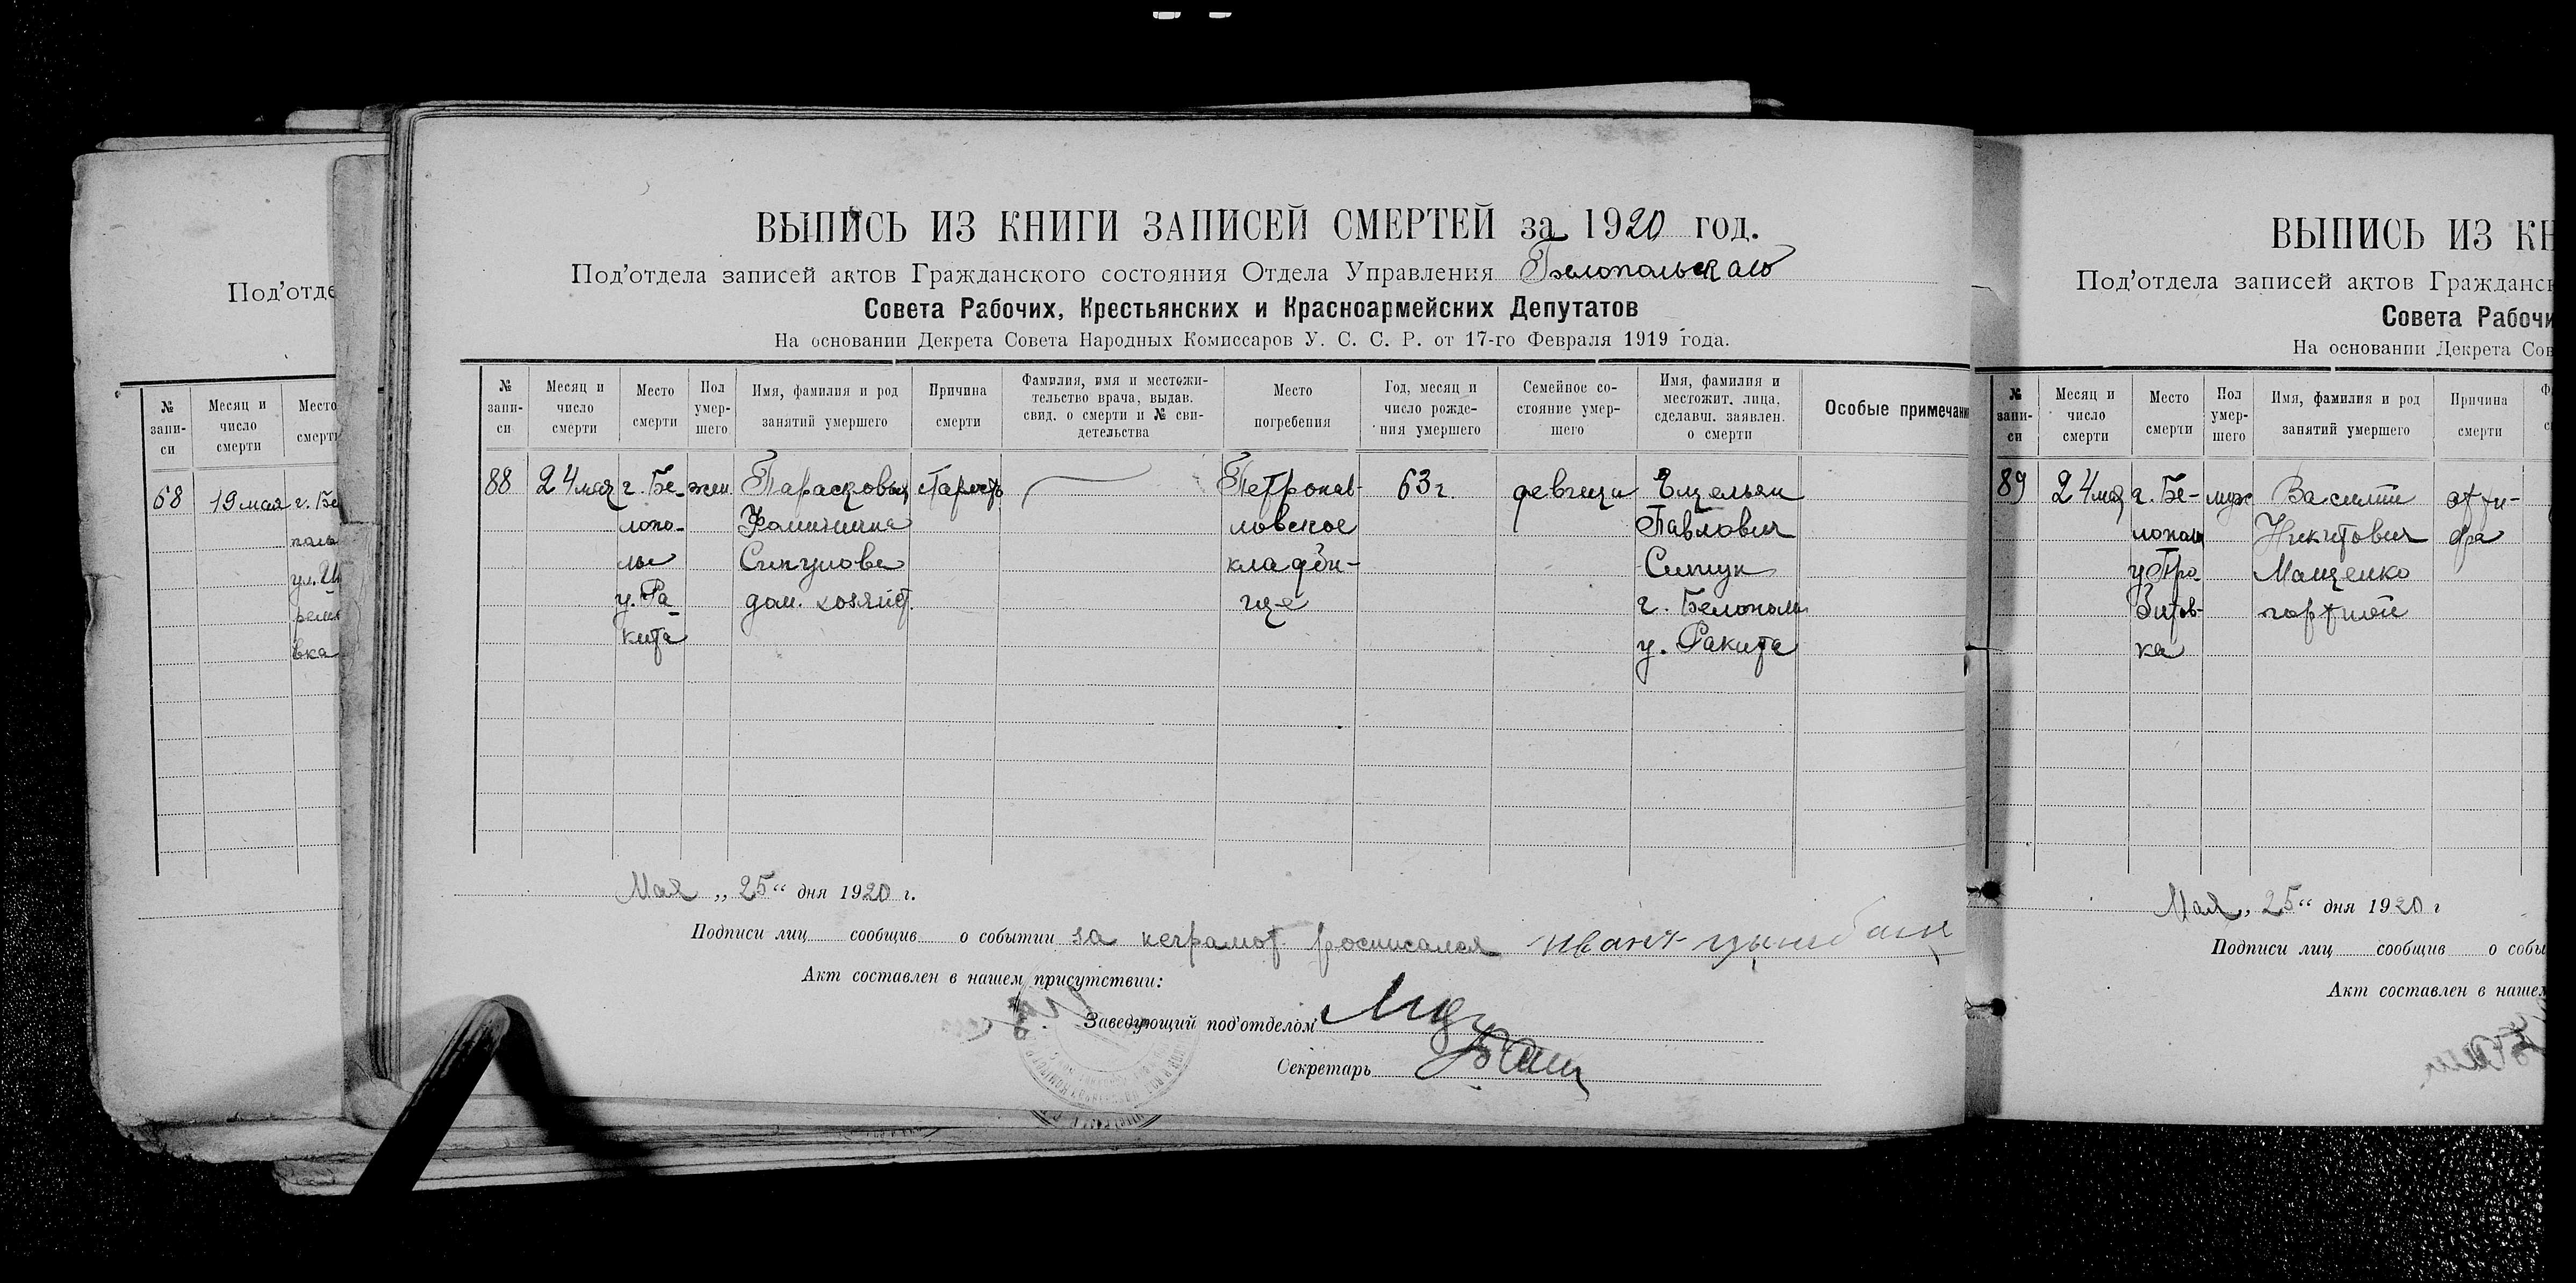 Под'отде
№ запи- си
Месяц и число смерти
Место смерти
68
19 мая
г. Бе
поль
ул. Ш
вка
ВЫПИСЬ ИЗ КНИГИ ЗАПИСЕЙ СМЕРТЕЙ за 1920 год.
Под'отдела записей актов Гражданского состояния Отдела Управления Белопольскаго
Совета Рабочих, Крестьянских и Красноармейских Депутатов
На основании Декрета Совета Народных Комиссаров У. С. С. Р. от 17-го Февраля 1919 года.
№ запи- си
Месяц и число смерти
Место смерти
Пол умер- шего
Имя, фамилия и род занятий умершего
Причина смерти
Фамилия, имя и местожи- тельство врача, выдав. свид. о смерти и № сви- детельства
Место погребения
Год, месяц и число рожде- ния умершего
Семейное со- стояние умер- шего
Имя, фамилия и местожит. лица, сделавш. заявлен. о смерти
Особые примечани
88
24 мая
г. Бе-
лопо-
ль
у. Ра-
кита
жен
Парасковья
Фоминична
Сипунова
дом. хозяйст.
старость
Петропав-
ловское
кладби-
ще
63 г.
девица
Емельян
Павлович
Сипун
г. Белополь
у. Ракита
Мая „ 25 “ дня 1920 г.
Подписи лиц сообщив о событии за неграмот. росписался иван
Акт составлен в нашем присутствии:
Заведующий под'отделом
Секретарь
ВЫПИСЬ ИЗ КН
Под'отдела записей актов Гражданск
Совета Рабочи
На основании Декрета Сов
№ запи- си
Месяц и число смерти
Место смерти
Пол умер- шего
Имя, фамилия и род занятий умершего
Причина смерти
89
24 мая
г. Бе-
лополь
у. Про
ка
муж
Василий
Никитович
Мащенко
портной
Мая „ 25 “ дня 1920 г
Подписи лиц сообщив о собы
Акт составлен в нашем